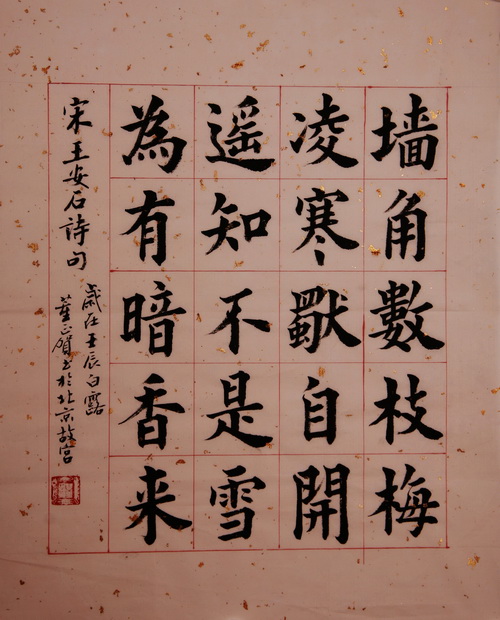 墙角數枝梅
凌寒獨自開
遥知不是雪
為有暗香来
宋王安石詩句
歲在壬辰白露
董正賀書於北京故宫